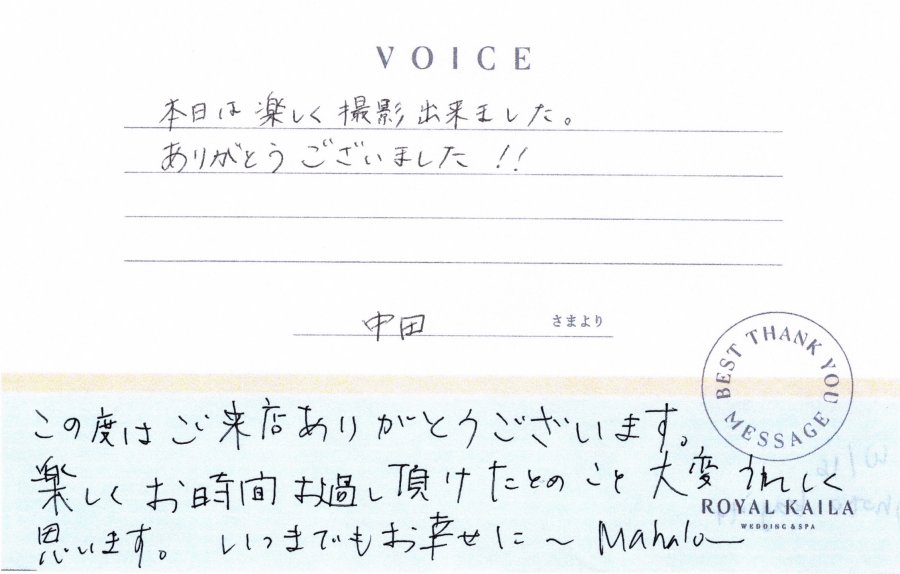 VOICE
本日は楽しく撮影出来ました。
ありがとうございました!!
中田 さまより
BEST THANK YOU MESSAGE
この度はご来店ありがとうございます。
楽しくお時間お過し頂けたとのこと大変うれしく
ROYAL KAILA
WEDDING & SPA
思います。 いつまでもお幸せに〜 Mahalo